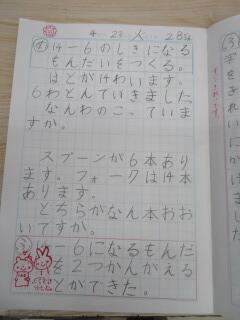 4-23 火 28日
め 14-6のしきになる
もんだいをつくる。
はとが14わいます。
6わとんでいきました
なんわのこっています
か。
スプーンが6本あり
ます。フォークは14本
あります。
どちらがなん本おお
いですか。
14-6になるもんだ
を2つかんがえる
とができた。